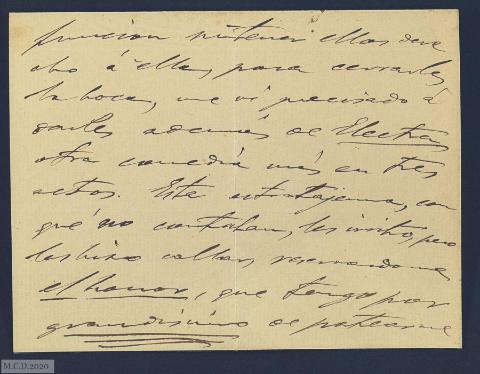 funcion ni tener ellos dere
cho á ella, para cerrarles
la boca, me vi precisado á
darles además de Electra,
otra comedia más en tres
actos. Esta estratajema, con
que no contaban, les irritó, pero
les hizo callar, reservandome
el honor, que tengo por
grandisimo de patearme
M.C.D.2020